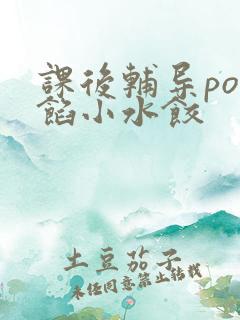 課後輔导po
餡小水餃
土豆茄子
未任同意禁止转载